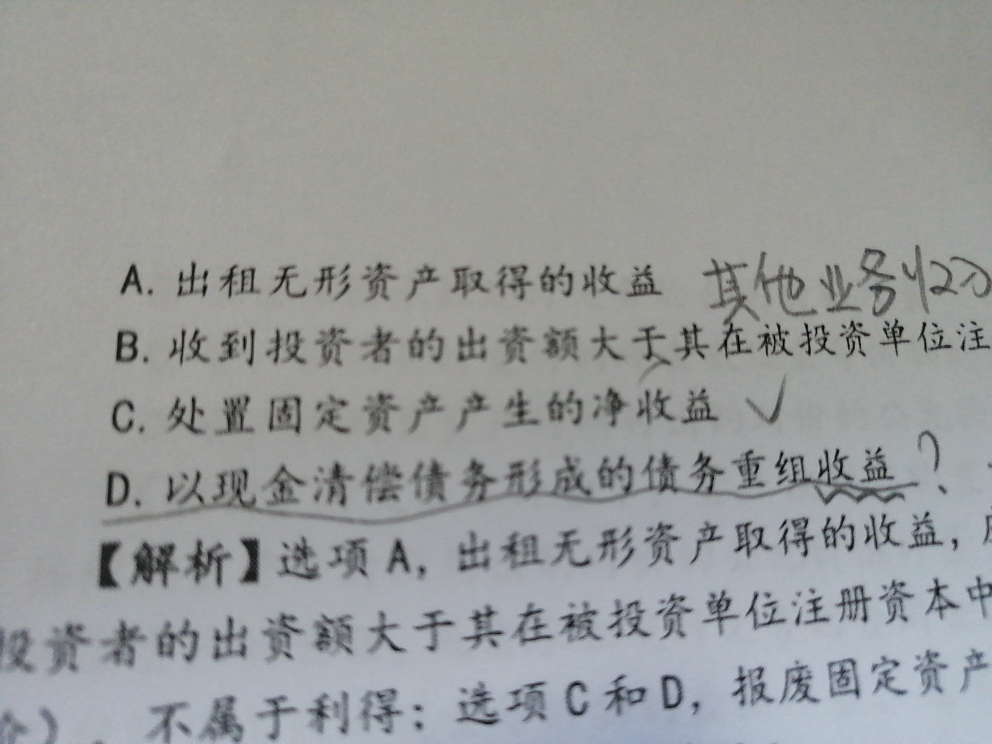 A. 出租无形资产取得的收益 其他业务收入
B. 收到投资者的出资额大于其在被投资单位注
C. 处置固定资产产生的净收益 ✓
D. 以现金清偿债务形成的债务重组收益 ?
【解析】选项A，出租无形资产取得的收益，
投资者的出资额大于其在被投资单位注册资本中
），不属于利得；选项C和D，报废固定资产